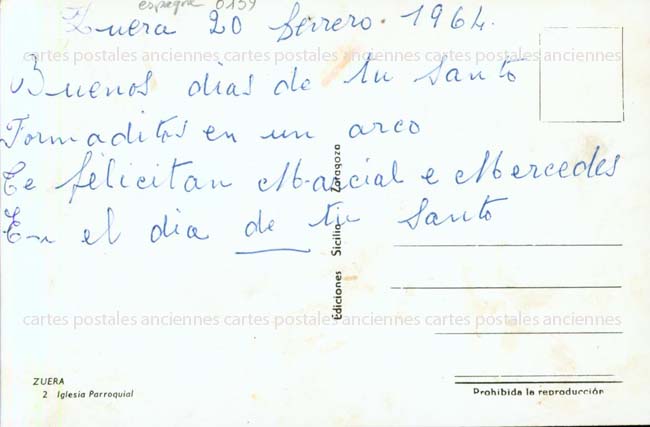 espagne 0139
Zuera 20 ferrero. 1964.
cartes postales anciennes cartes postales anciennes cartes postales anciennes
Buenos dias de tu santo
Formaditos en un arco
Te felicitan Marcial e Mercedes
cartes postales anciennes cartes postales anciennes cartes postales anciennes
En el dia de tu santo
Ediciones Sicilia Zaragoza
cartes postales anciennes cartes postales anciennes cartes postales anciennes
ZUERA
2 Iglesia Parroquial
Prohibida la reproducción